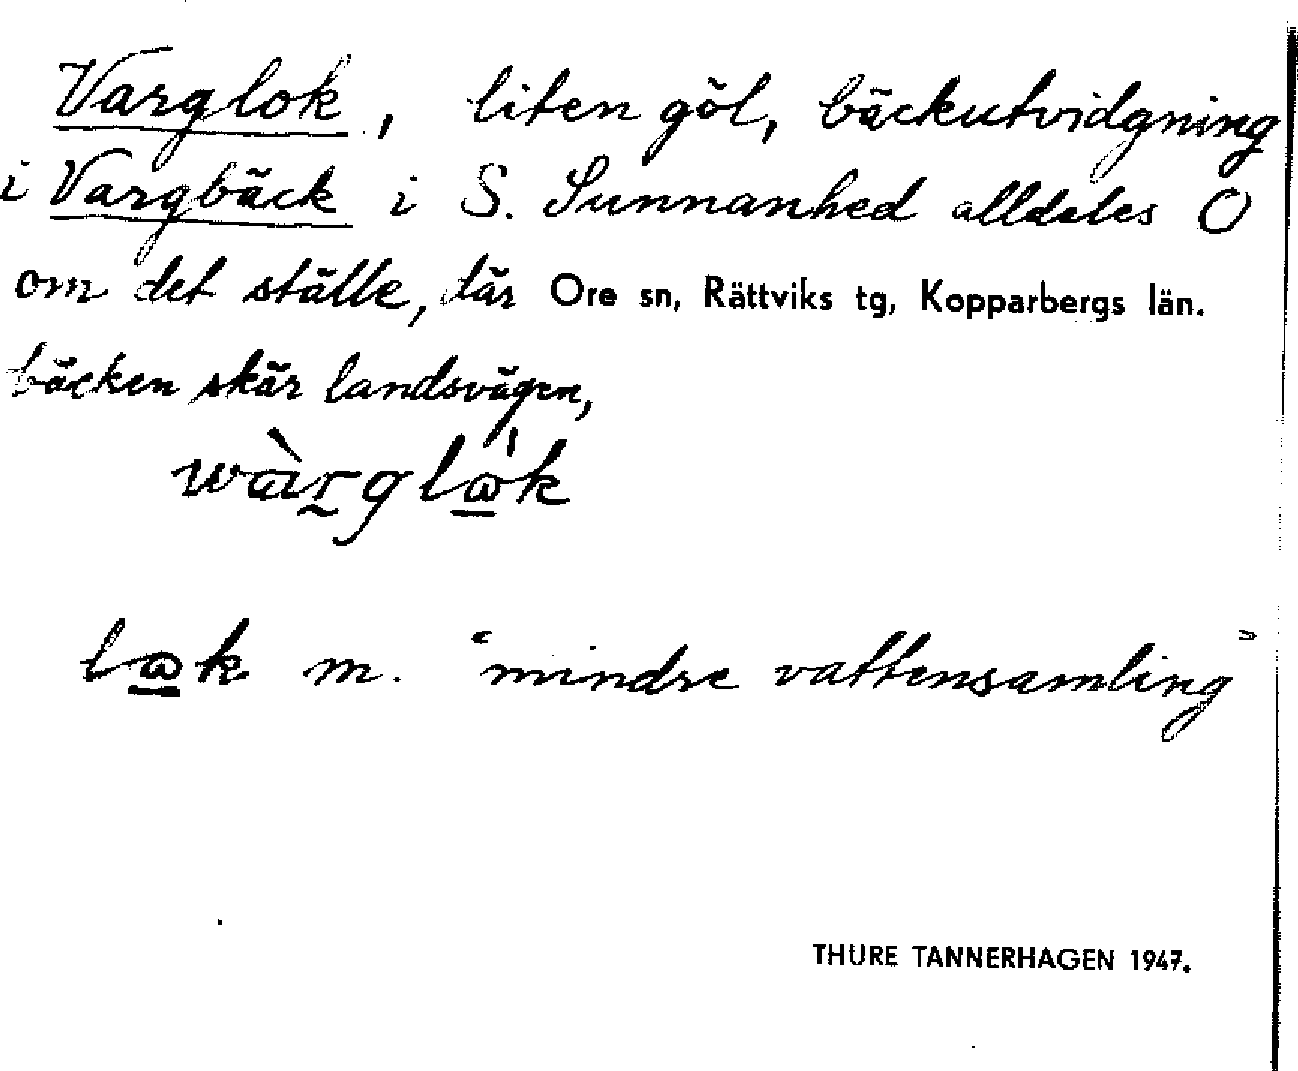 Varglok, liten göl, bäckutvidgning
i Vargbäck i S. Sunnanhed alldeles O
om det ställe, där Ore sn, Rättviks tg, Kopparbergs län.
bäcken skär landsvägen,
wàrglω̲̍k
lω̲k m. "mindre vattensamling"
THURE TANNERHAGEN 1947.